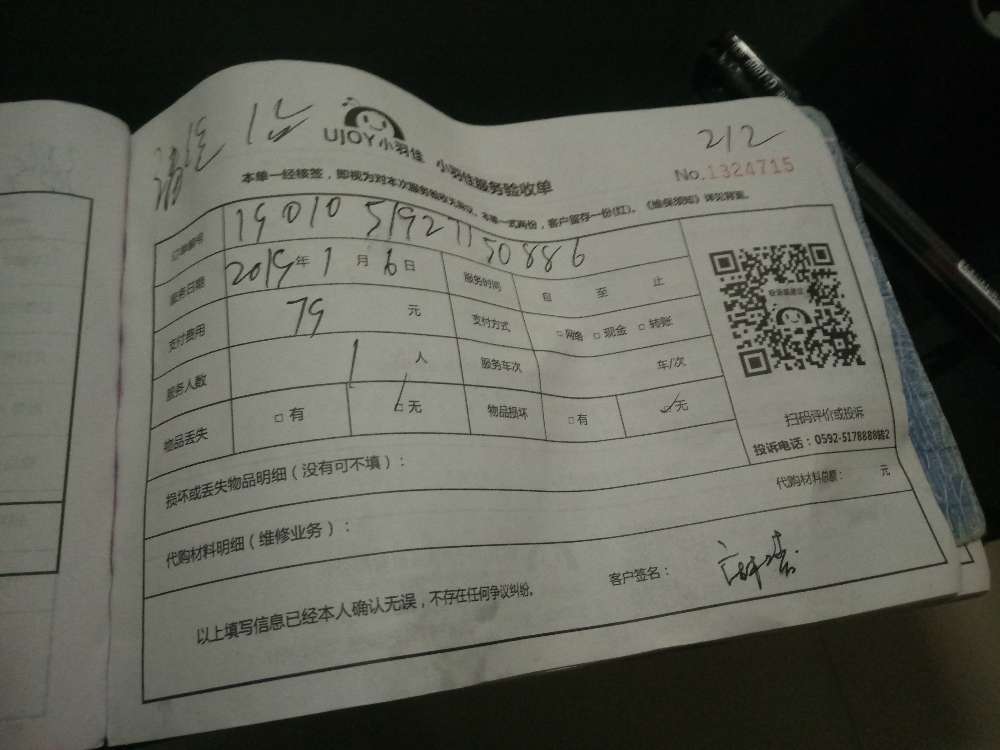 212
UJOY小羽佳 小羽佳服务验收单
No.1324715
本单一经核签，即视为对本次服务验收无异议。本单一式两份，客户留存一份(红)。《维保须知》详见背面。
订单编号 19010519271150886
服务日期 2019年1月6日 服务时间 自 至 止
支付费用 79 元 支付方式 □网络 □现金 □转账
服务人数 1 人 服务车次 车/次
物品丢失 □有 □无 物品损坏 □有 □无
扫码评价或投诉
投诉电话：0592-5178888转2
损坏或丢失物品明细（没有可不填）：
代购材料明细（维修业务）： 代购材料总额： 元
以上填写信息已经本人确认无误，不存在任何争议纠纷。 客户签名：